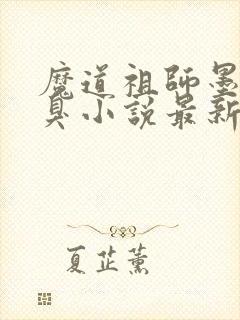 魔道祖師墨
臭小說最新
夏芷薰